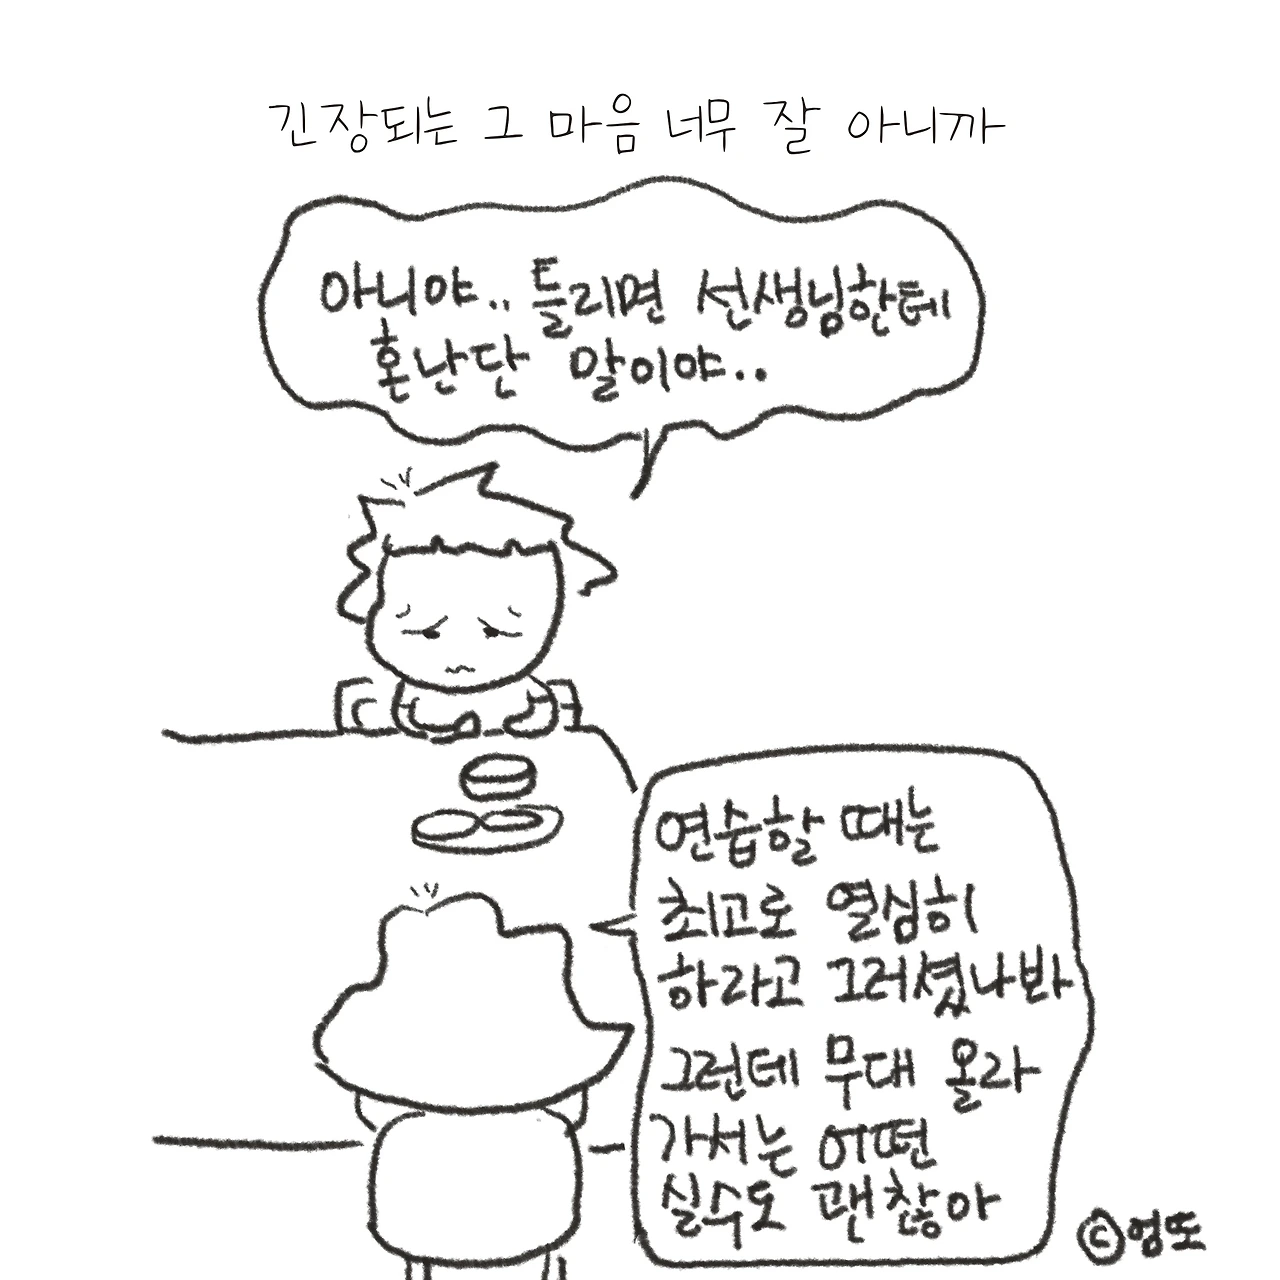 긴장되는 그 마음 너무 잘 아니까
아니야.. 틀리면 선생님한테
혼난단 말이야..
연습할 때는
최고로 열심히
하라고 그러셨나봐
그런데 무대 올라
가서는 어떤
실수도 괜찮아
©엉또